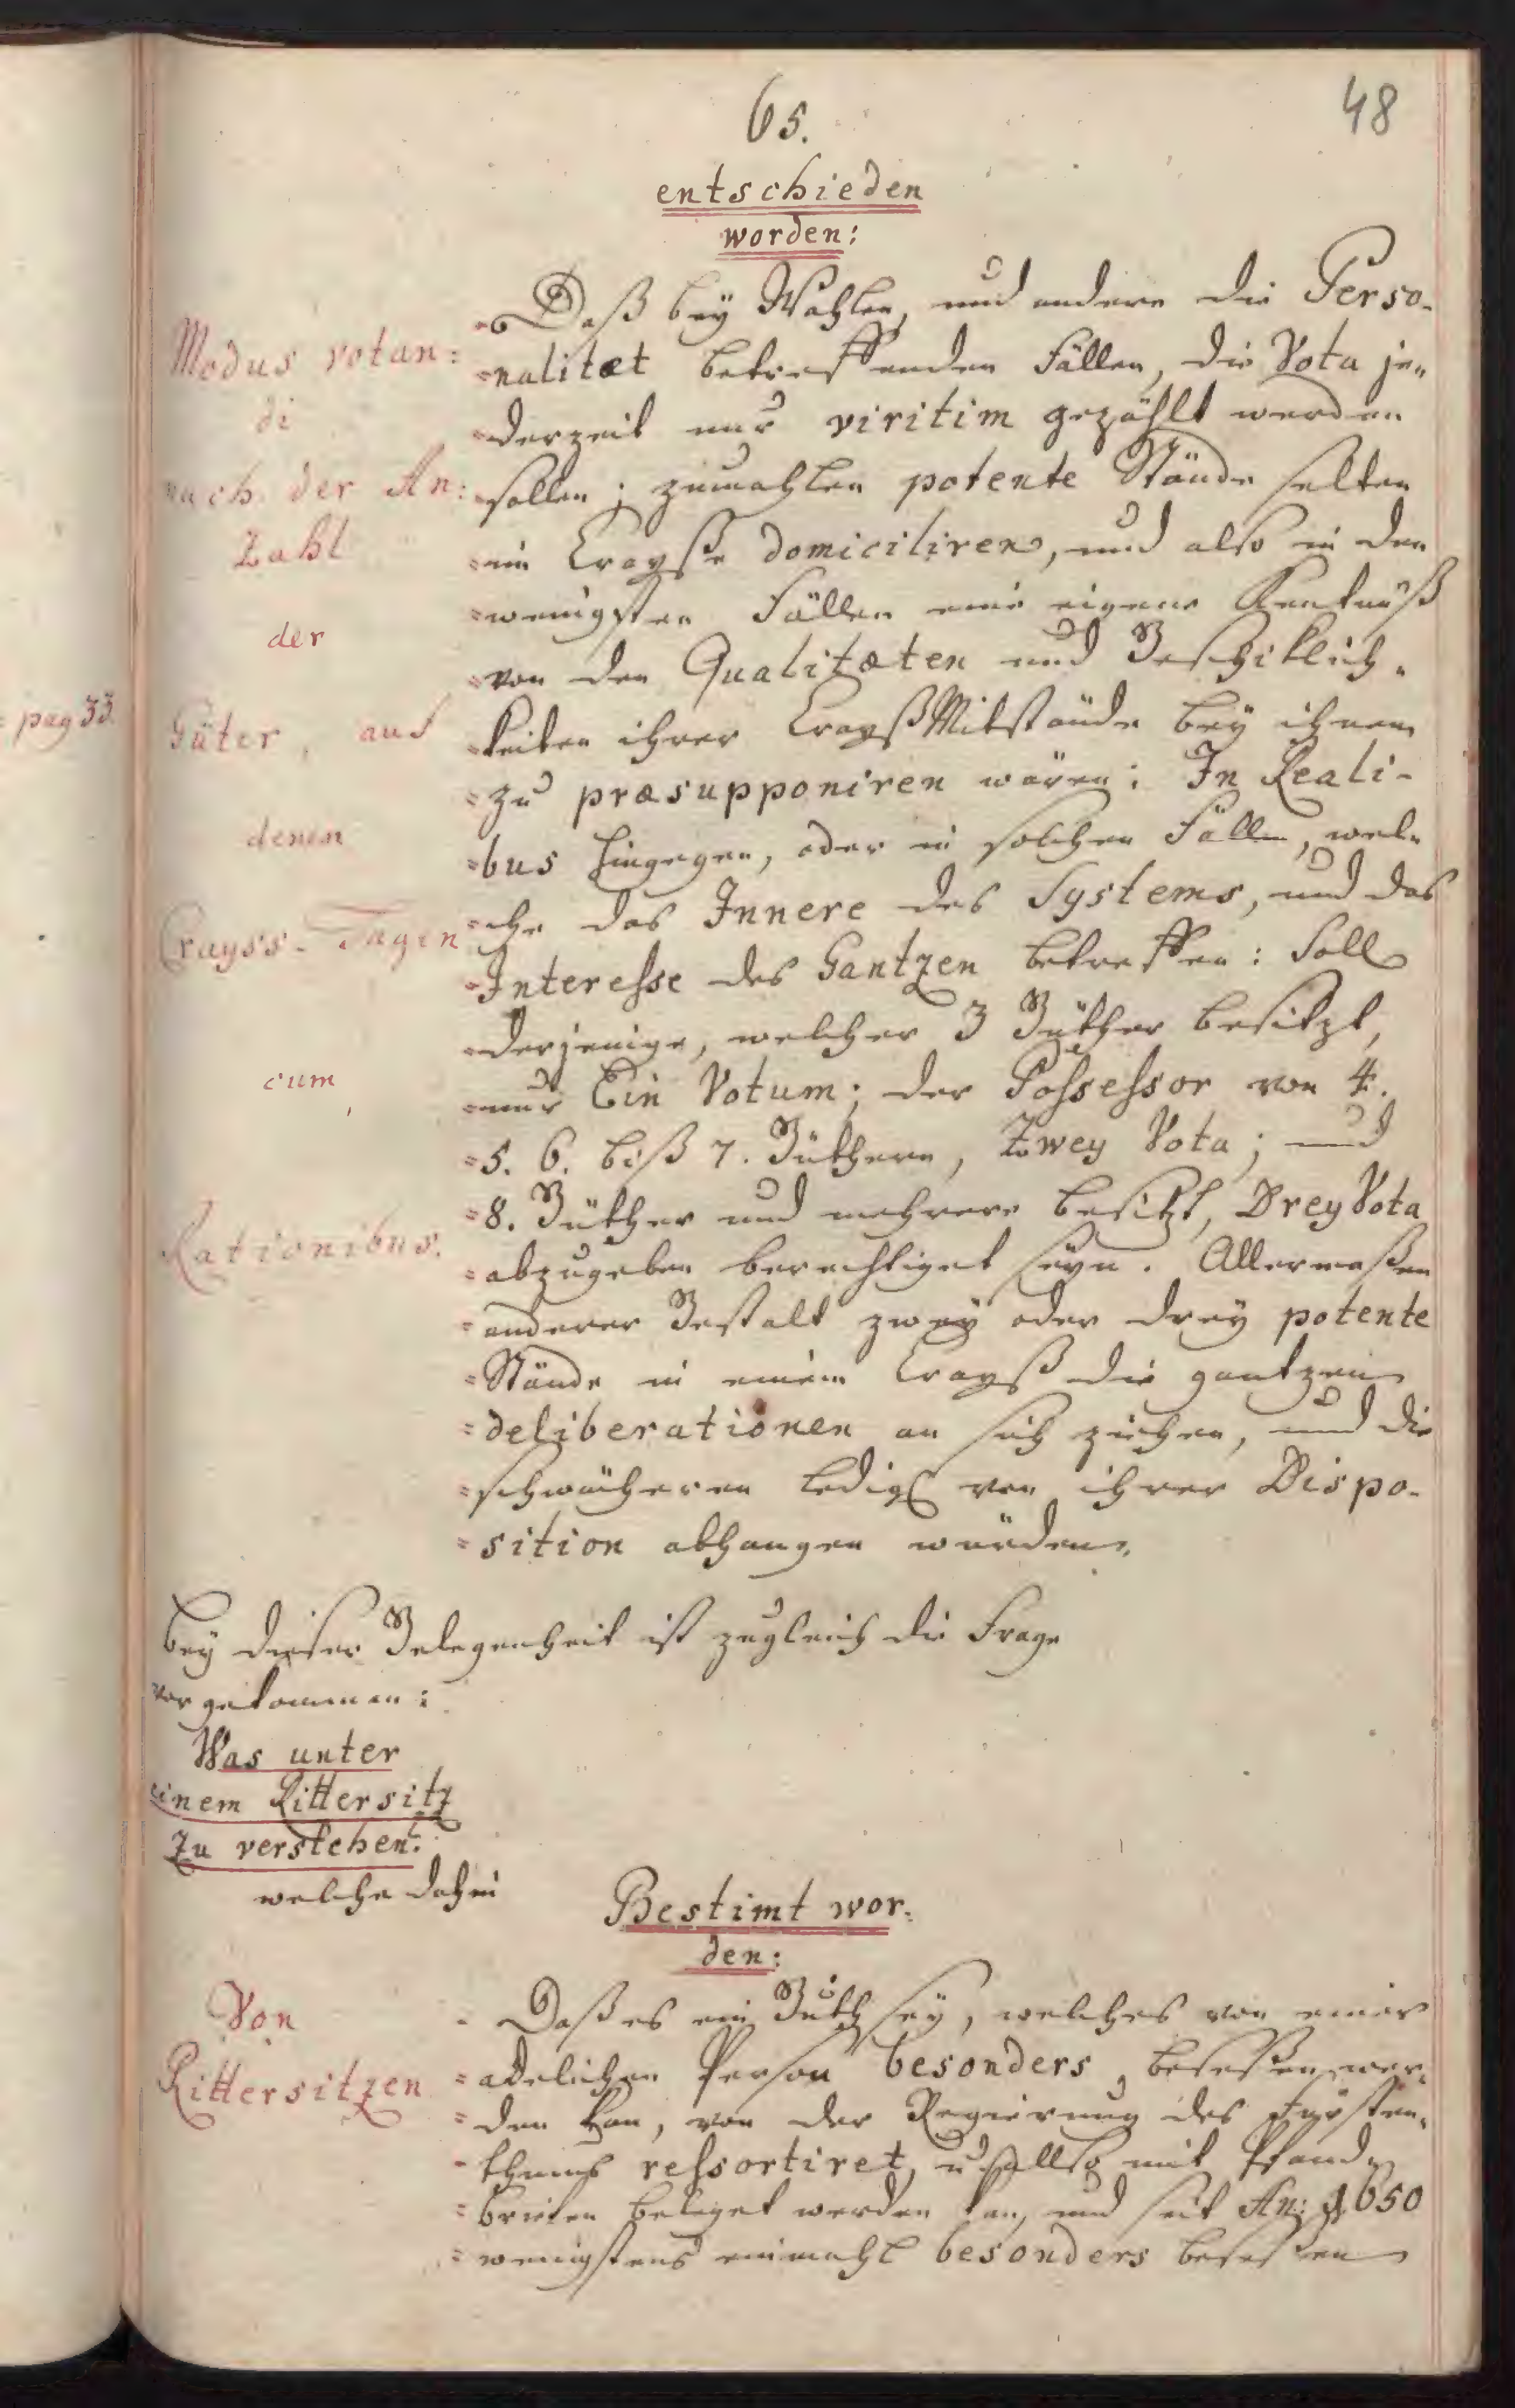 65.
48
entschieden
worden:
Modus votan:
di
nach der An:
Zahl
der
Güter, auf
denen
Crayss-Tagen
cum
Rationibus.
pag 33.
Daß bey Wahlen, und andere die Perso-
=nalitæt betreffenden Fällen, die Vota je=
=derzeit nur viritim gezählt werden
=sollen; zumahlen potente Stände selten
=im Crayße domiciliren, und also in den
=wenigsten Fällen eine eigene Kentnüß
=von den Qualitæten und Geschiklich=
=keiten ihrer Crayß Mitstände bey ihnen
=zu præsupponiren wären: In Reali-
=bus hingegen, oder in solchen Fällen, wel=
=che das Innere des Systems, und das
=Interesse des Gantzen betreffen: Soll
=derjenige, welcher 3 Güther besitzt,
=nur Ein Votum; der Possessor von 4.
=5. 6. biß 7. Güthern, Zwey Vota; und
=8. Güther und mehrere besitzt, Drey Vota
=abzugeben berechtiget seyn. Allermaßen
=anderer Gestalt zwey oder drey potente
=Stände in einem Crayß die gantzen
=deliberationen an sich ziehen, und die
=schwächeren ledigl von ihrer Dispo-
=sition abhangen würden.
Bey dieser Gelegenheit ist zugleich die Frage
vorgekommen:
Was unter
einem Rittersitz
Zu verstehen?
welche dahin
Bestimt wor-
den:
Von
Rittersitzen
Daß es ein Guth sey, welches von einer
=adelichen Person besonders, beseßen wer=
=den kan, von der Regierung des Fürsten=
=thums ressortiret, u. allso mit Pfand=
=briefen beleget werden kan, und seit An: 1650
=wenigstens einmahl besonders beseßen